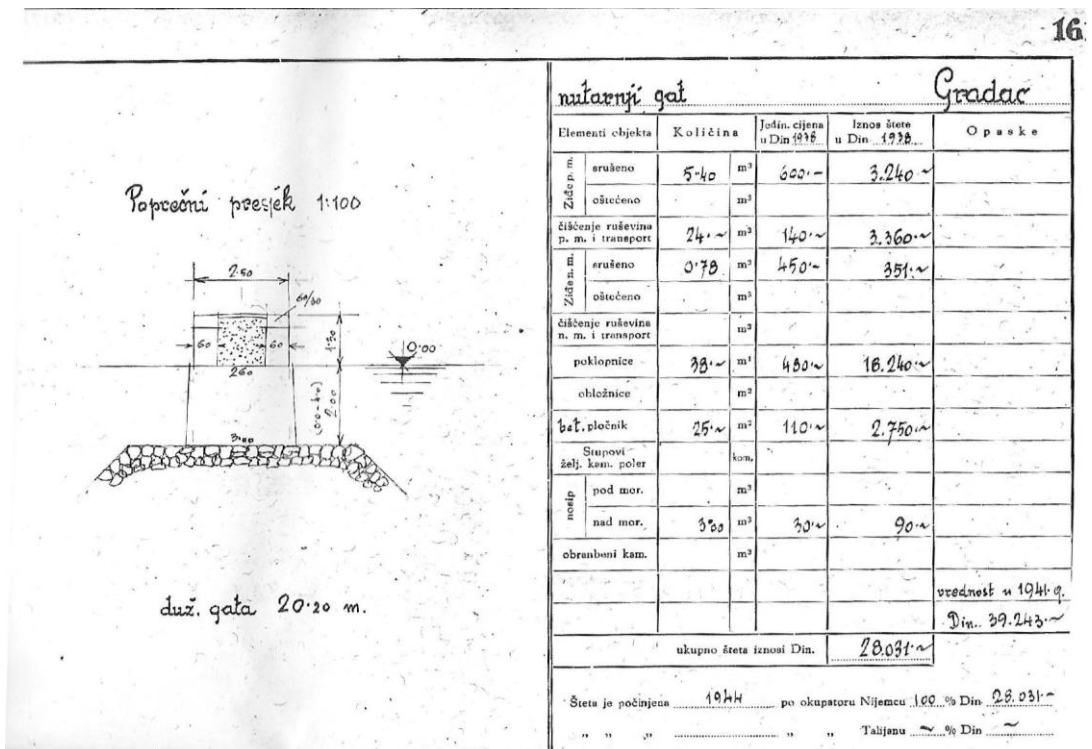 16
Poprečni presjek 1:100
2.50
60/30
60
60
1.30
0.00
2.60
2.00
3.00
duž. gata 20.20 m.
nutarnji gat Gradac
Elementi objekta Količina Jedin. cijena u Din 1938 Iznos štete u Din 1938 Opaske
Ziđe p. m. srušeno 5.40 m³ 600.- 3.240.~
oštećeno m³
čišćenje ruševina p. m. i transport 24.~ m³ 140.~ 3.360.~
Ziđe n. m. srušeno 0.78 m³ 450.- 351.~
oštećeno m³
čišćenje ruševina n. m. i transport m³
poklopnice 38.~ m¹ 480.~ 18.240.~
obložnice m²
bet. pločnik 25.~ m² 110.~ 2.750.~
Stupovi želj. kam. poler kom.
nosip pod mor. m³
nad mor. 3.00 m³ 30.~ 90.~
obranbeni kam. m³
vrednost u 1941.g.
Din. 39.243.~
ukupno šteta iznosi Din. 28.031.~
Šteta je počinjena 1944 po okupatoru Nijemcu 100 % Din 28.031.-
„ „ „ „ „ Talijanu ~ % Din ~